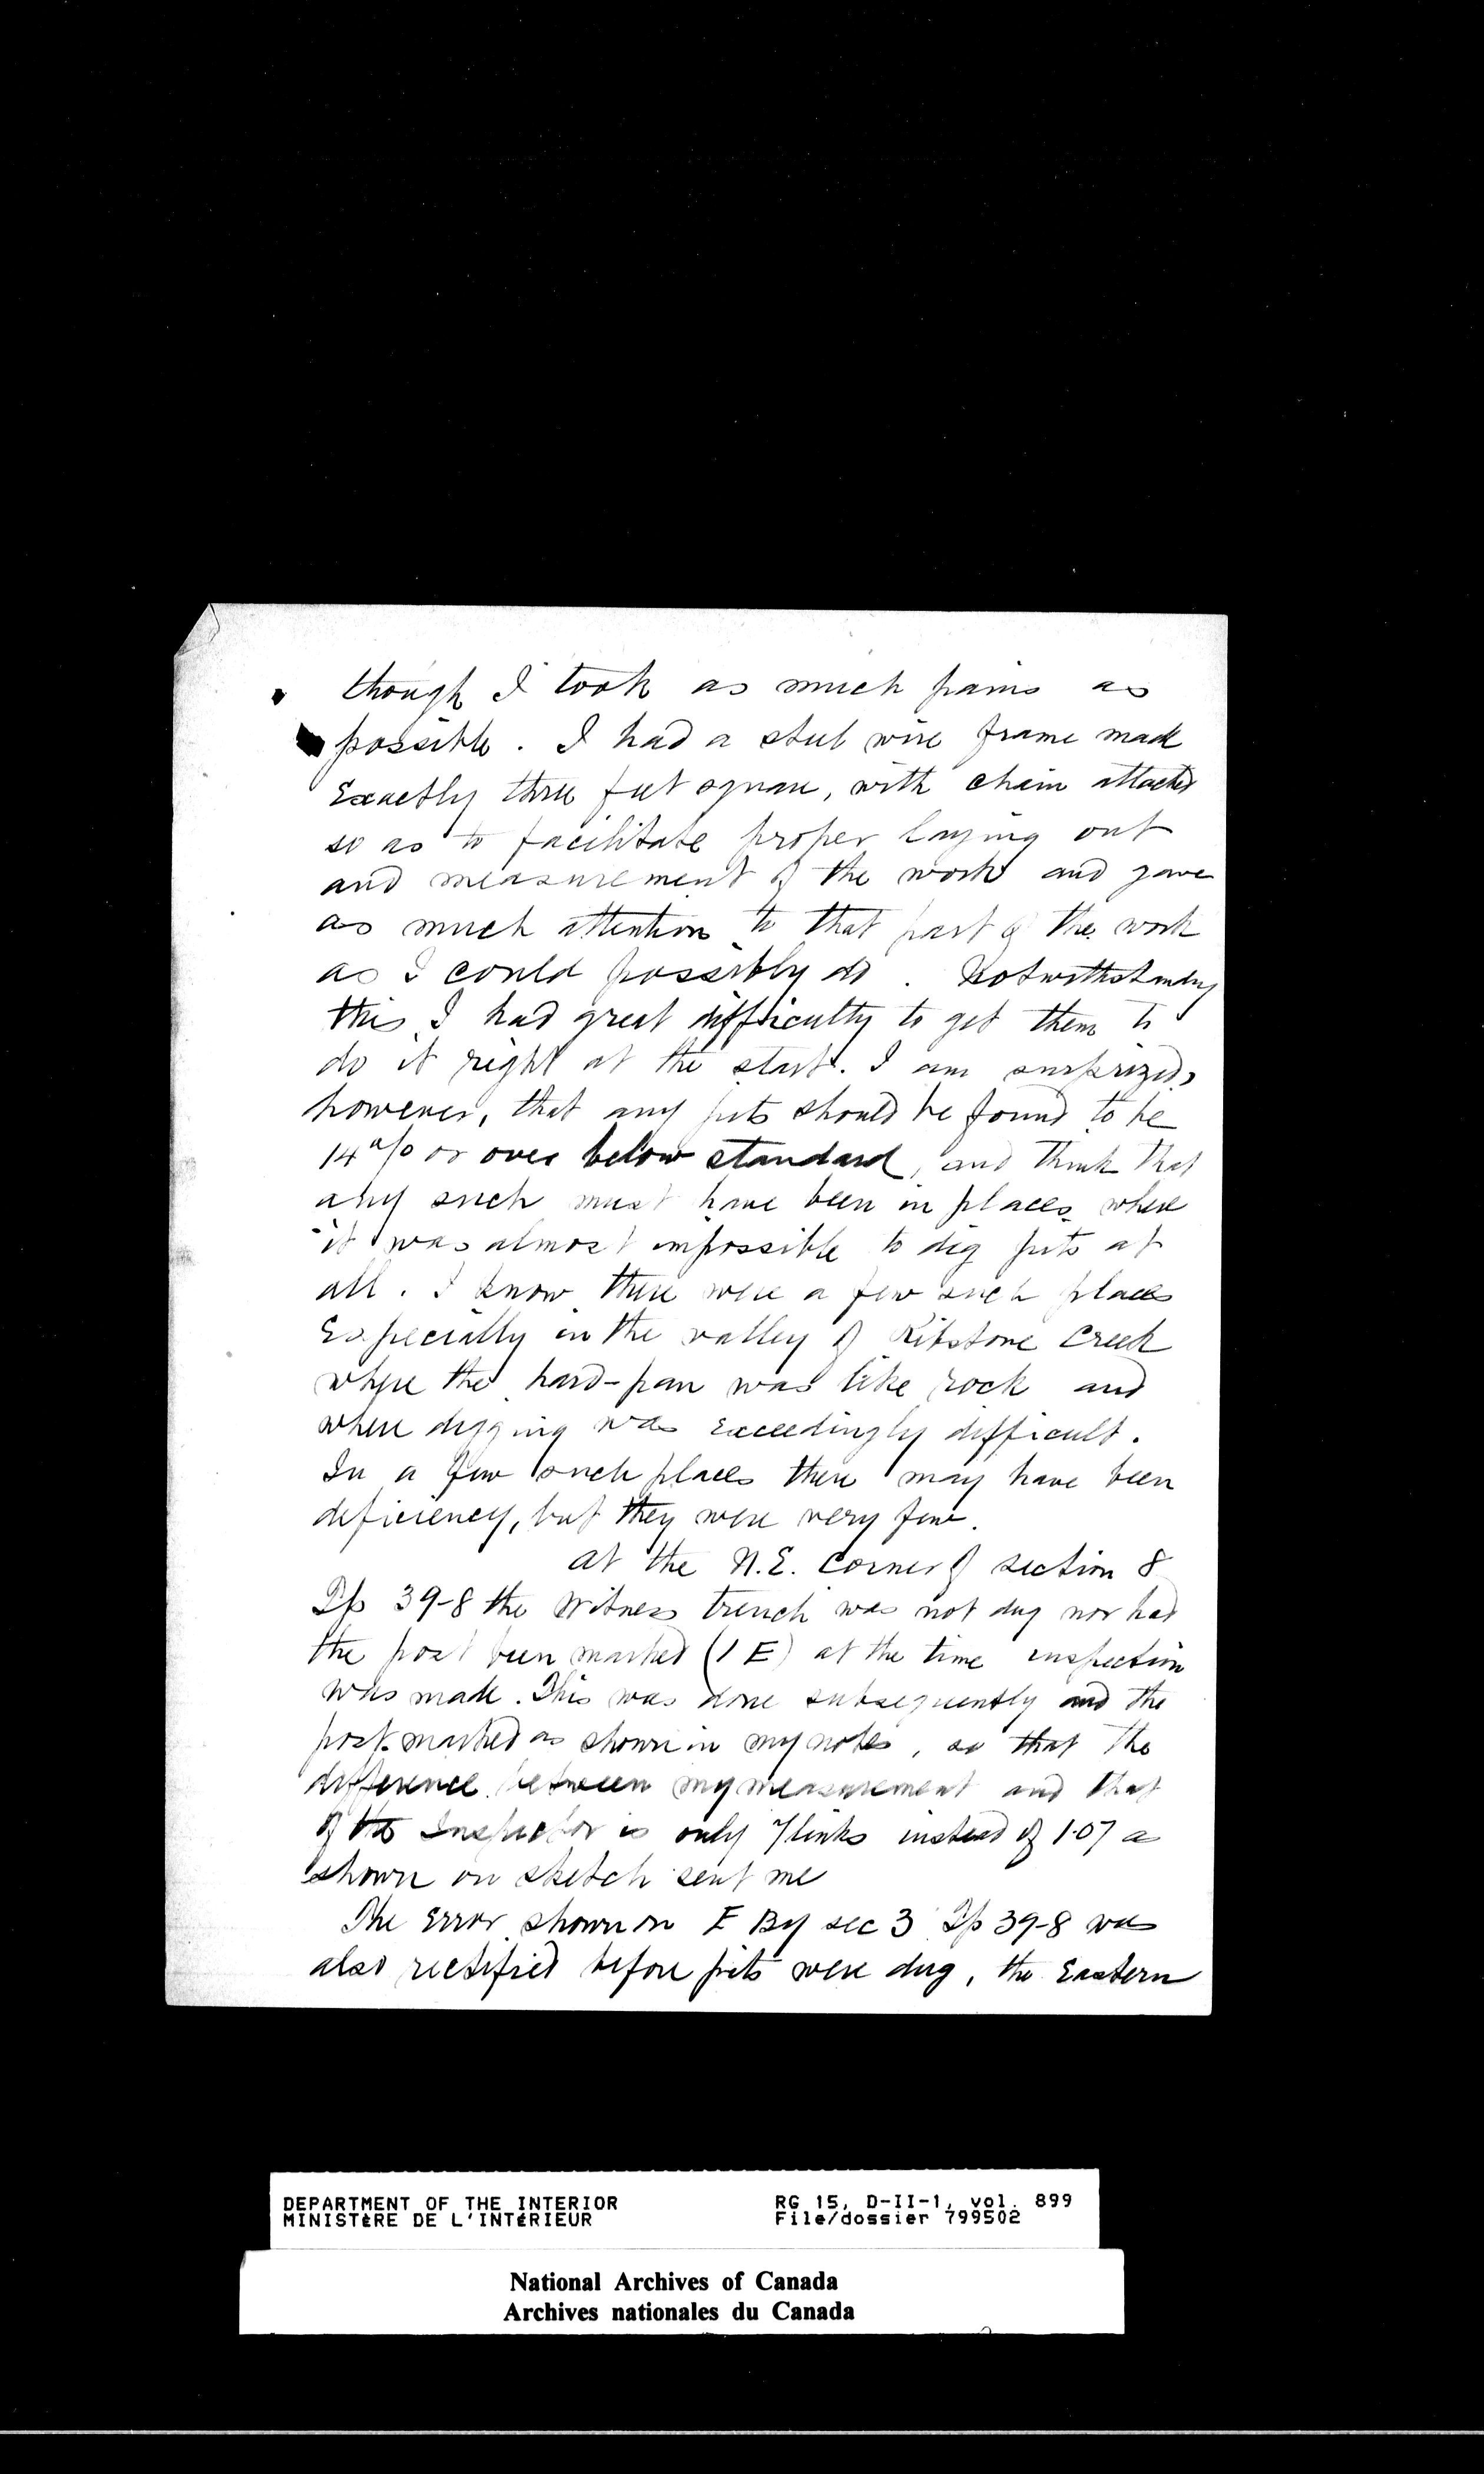 though I took as much pains as
possible. I had a steel wire frame made
Exactly three feet square, with chain attached
so as to facilitate proper laying out
and measurement of the work and gave
as much attention to that part of the work
as I could possibly do. Notwithstanding
this I had great difficulty to get them to
do it right at the start. I am surprized,
however, that any pits should be found to be
14% or over below standard, and think that
any such must have been in places where
it was almost impossible to dig pits at
all. I know there were a few such places
Especially in the valley of Ribstone Creek
where the hard-pan was like rock and
where digging was Exceedingly difficult.
In a few such places there may have been
deficiency, but they were very few.
at the N.E. Corner of section 8
Tp 39-8 the Witness trench was not dug nor had
the post been marked (1 E) at the time inspection
was made. This was done subsequently and the
post marked as shown in my notes, so that the
difference between my measurement and that
of the Inspector is only 7 links instead of 1.07 as
shown on sketch sent me
The Error shown on E By sec 3 Tp 39-8 was
also rectified before pits were dug, the Eastern
DEPARTMENT OF THE INTERIOR RG 15, D-II-1, vol. 899
MINISTÈRE DE L'INTÉRIEUR File/dossier 799502
National Archives of Canada
Archives nationales du Canada